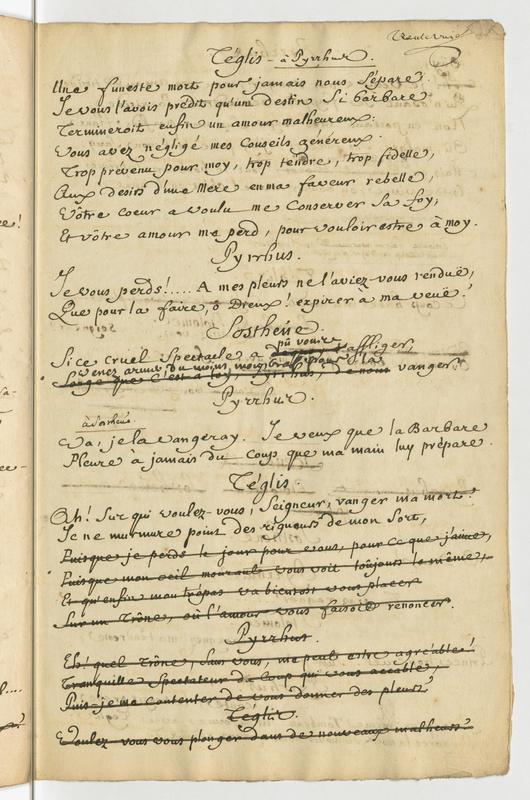 Téglis - à Pyrrhus.
Une funeste mort pour jamais nous sépare.
Je vous l'avois prédit qu'un destin si barbare
Termineroit enfin un amour malheureux:
Vous avez négligé mes Conseils généreux.
Trop prévenu pour moy, trop tendre, trop fidelle,
Aux desirs d'une Mere en ma faveur rebelle,
Vôtre coeur a voulu me Conserver sa foy,
Et vôtre amour me perd, pour vouloir estre à moy.
Pyrrhus.
Je vous perds!..... A mes pleurs ne l'aviez-vous renduë,
Que pour la faire, ô Dieux! expirer à ma veuë?
Sosthéne.
pû vous
Si ce cruel Spectacle a affliger,
Venez du moins, pour la
Songe que C'est à toy, Pyrrhus, de nous vanger.
Pyrrhus.
à Sosthéne.
Va, je la vangeray. Je veux que la Barbare
Pleure à jamais du Coup que ma main luy prépare.
Téglis.
Ah! Sur qui voulez-vous, Seigneur, vanger ma mort?
Je ne murmure point des rigueurs de mon Sort,
Puisque je perds le jour pour vous, pour Ce que j'aime,
Puisque mon oeil mourant vous voit toujours le même,
Et qu'enfin mon trépas va bientost vous placer
Sur un Trône, où l'amour vous faisoit renoncer.
Pyrrhus.
Eh! quel Trône, sans vous, me peut estre agréable!
Tranquille Spectateur du Coup qui vous accable,
Puis-je me Contenter de vous donner des pleurs?
Téglis.
Voulez vous vous plonger dans de nouveaux malheurs?